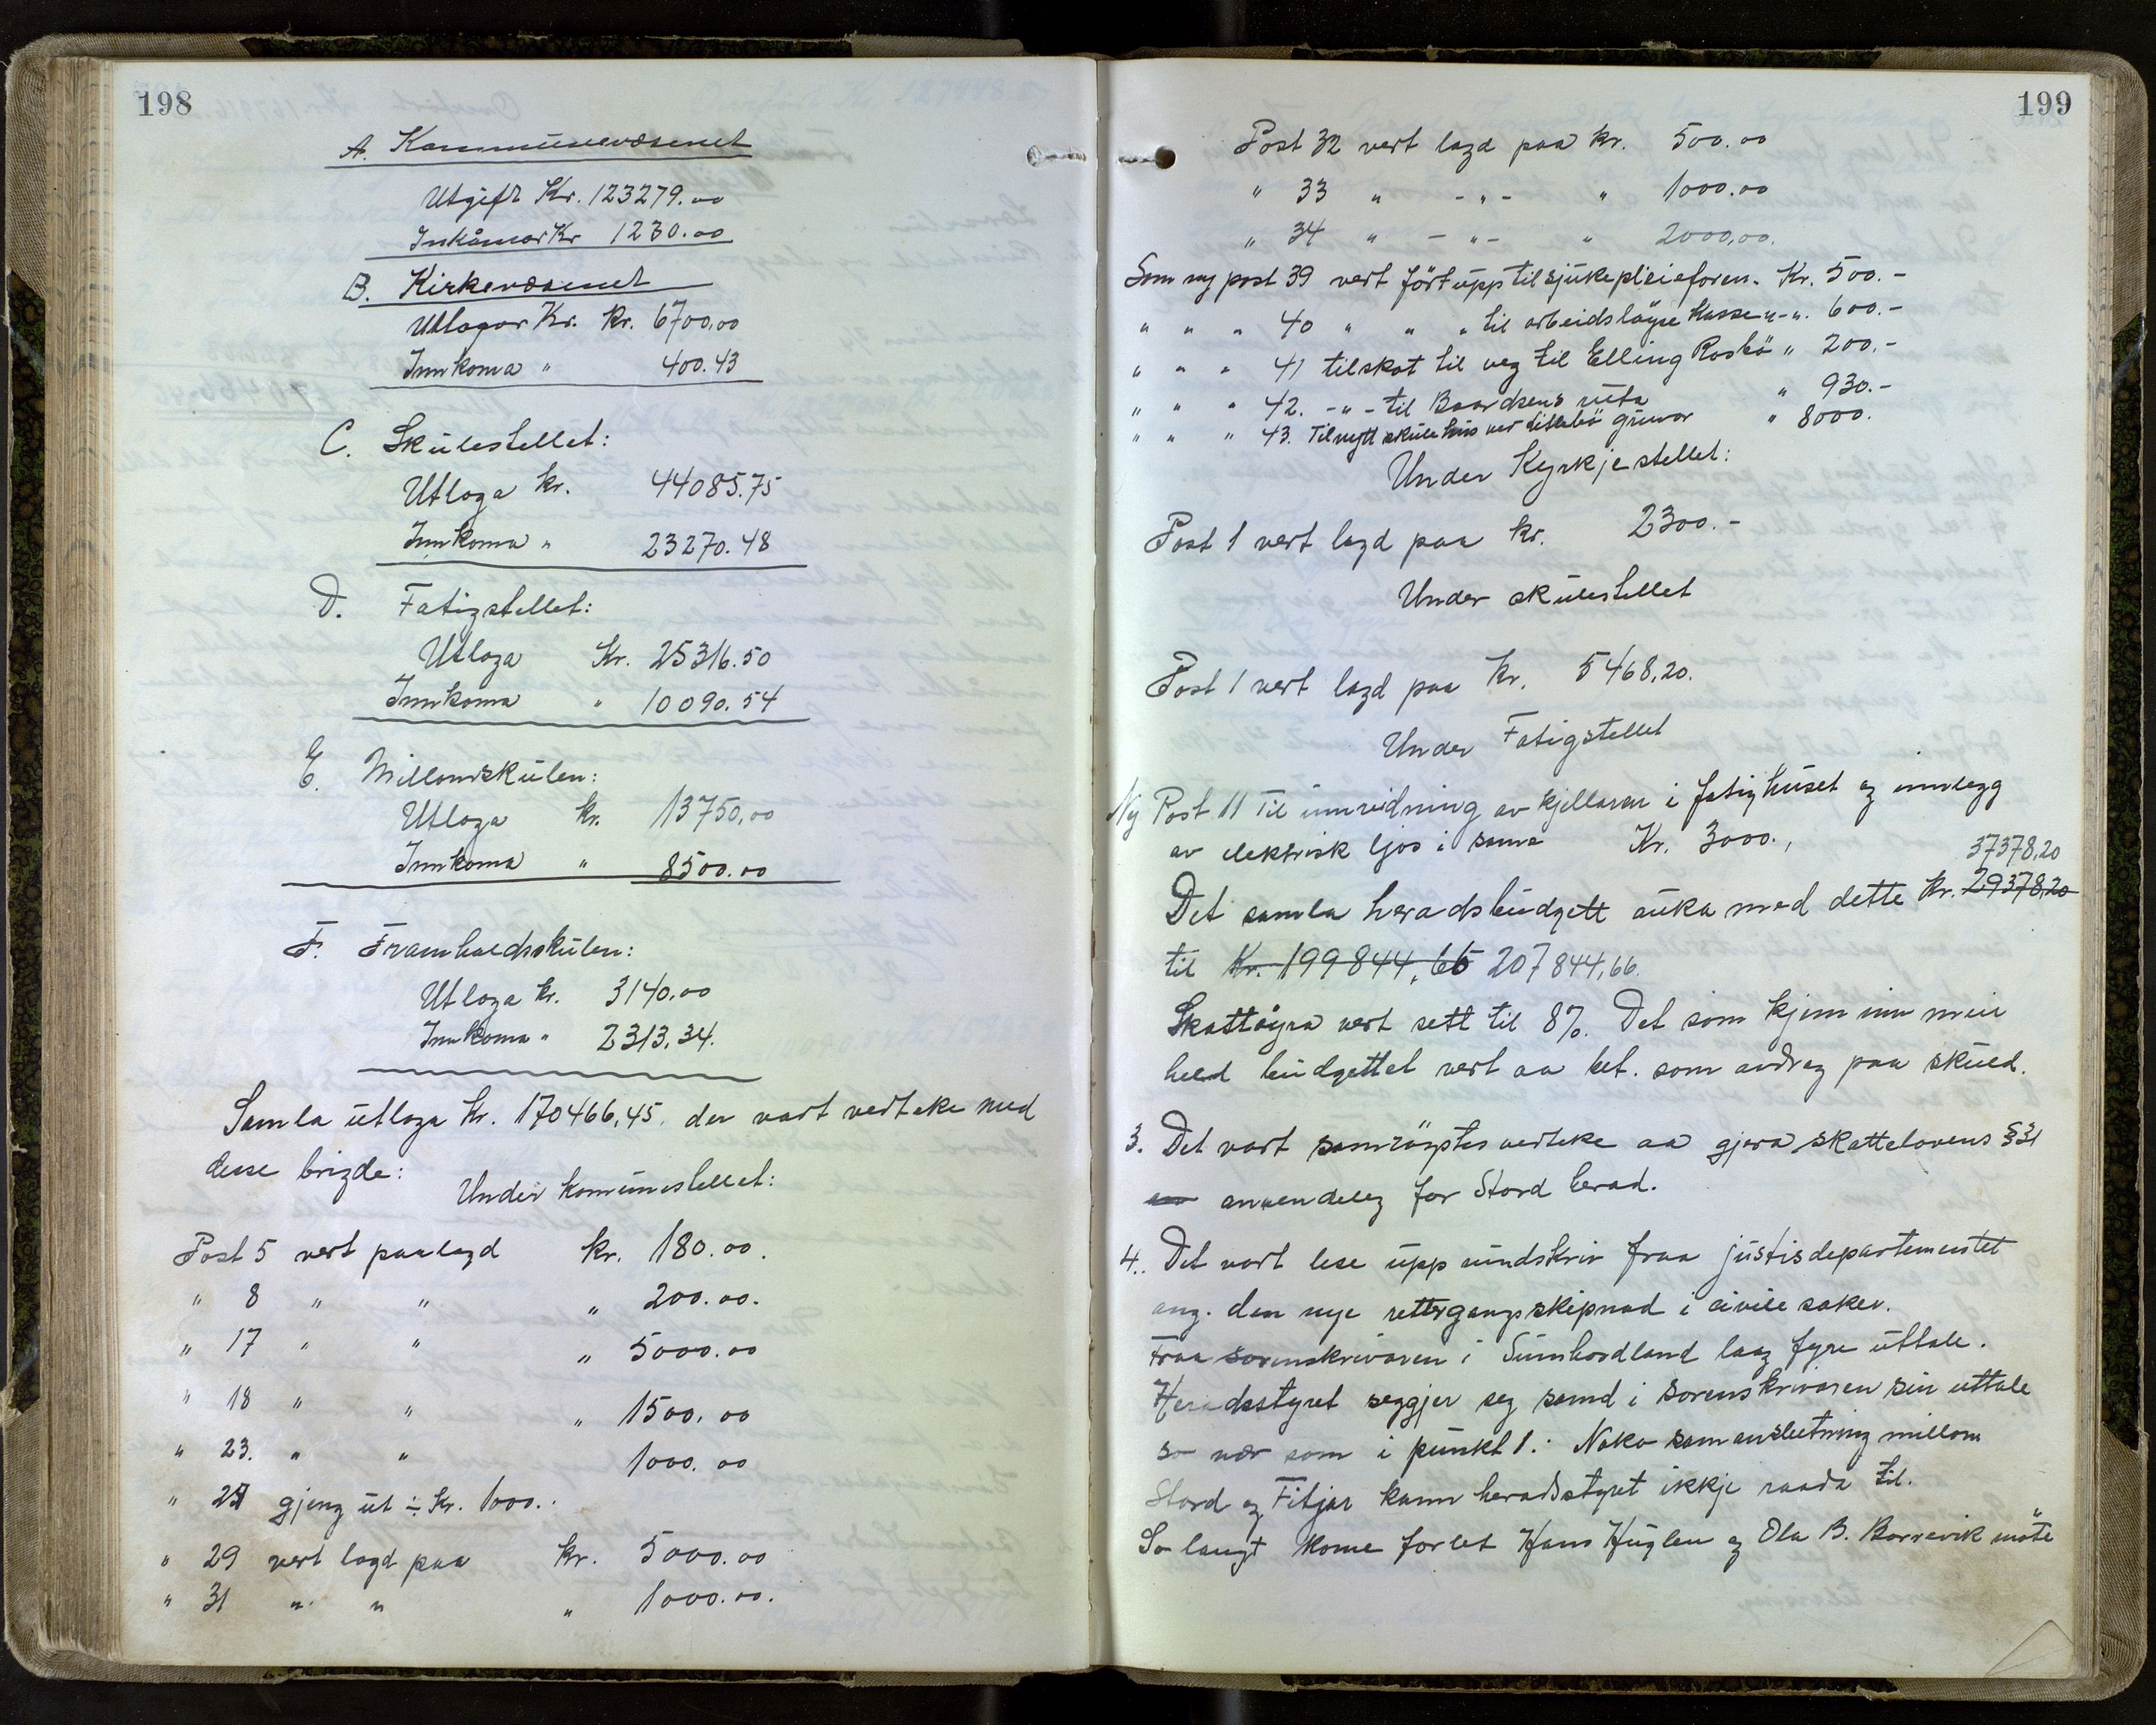 198
A. Kommunevæsenet
Utgift Kr. 123279.00
Inkåmor Kr 1230.00
B. Kirkevæsenet
Utlagor Kr. kr. 6700,00
Innkoma " 400.43
C. Skulestellet:
Utloga kr. 44085.75
Innkoma " 23270.48
D. Fatigstellet:
Utloga Kr. 25316.50
Innkoma " 10090.54
E. Millomskulen:
Utloga kr. 13750,00
Innkoma " 8500.00
F. Framhaldskulen:
Utloga kr. 3140.00
Innkoma " 2313,34.
Samla utloga kr. 170466,45, der vart vedteke med
desse brigde:
Under komunestellet:
Post 5 vert paalagd kr. 180.00.
" 8 " " " 200.00.
" 17 " " " 5000.00
" 18 " " " 1500.00
" 23. " " 1000.00
" gjeng ut ÷ Kr. 1000.
" 29 vert lagd paa kr. 5000.00
" 31 " " " 1000.00.
199
Post 32 vert lagd paa kr. 500.00
" 33 " - " - " 1000.00
" 34 " - " - " 2000,00.
Som ny post 39 vert ført upp til sjukepleieforen. Kr. 500.-
" " " 40 " " " til arbeidsløyse kasse " - ". 600.-
" " " 41 tilskot til veg til Elling Rosbö " 200.-
" " " 42. - " - til Baardsens ruta " 930.-
" " " 43. Til nytt skulehus ver Litlabö gruvor " 8000.
Under Kyrkjestellet:
Post 1 vert lagd paa kr. 2300.-
Under skulestellet
Post 1 vert lagd paa kr. 5468,20.
Under Fatigstellet
Ny Post 11 Til innreidning av kjellaren i fatighuset og innlegg
av elektrisk ljos i sama Kr. 3000.,
37378,20
Det samla heradsbudgett auka med dette kr. 29378,20
til Kr. 199844,66 207844,66.
Skattøyra vert sett til 8%. Det som kjem inn meir
held budgettet vert aa bet. som avdrag paa skuld.
3. Det vart samrøystes vedteke aa gjera skattelovens § 31
anvendeleg for Stord herad.
4. Det vart lese upp rundskriv fraa justisdepartementet
ang. den nye rettergangsskipnad i civile saker.
Fraa sorenskrivaren i Sunnhordland laag fyre uttale.
Heradsstyret seggjer seg samd i Sorenskrivaren sin uttale
so nær som i punkt 1.: Noko samanslutning millom
Stord og Fitjar kann heradsstyret ikkje raada til.
So langt kome forlet Hans Huglen og Ola B. Borrevik möte